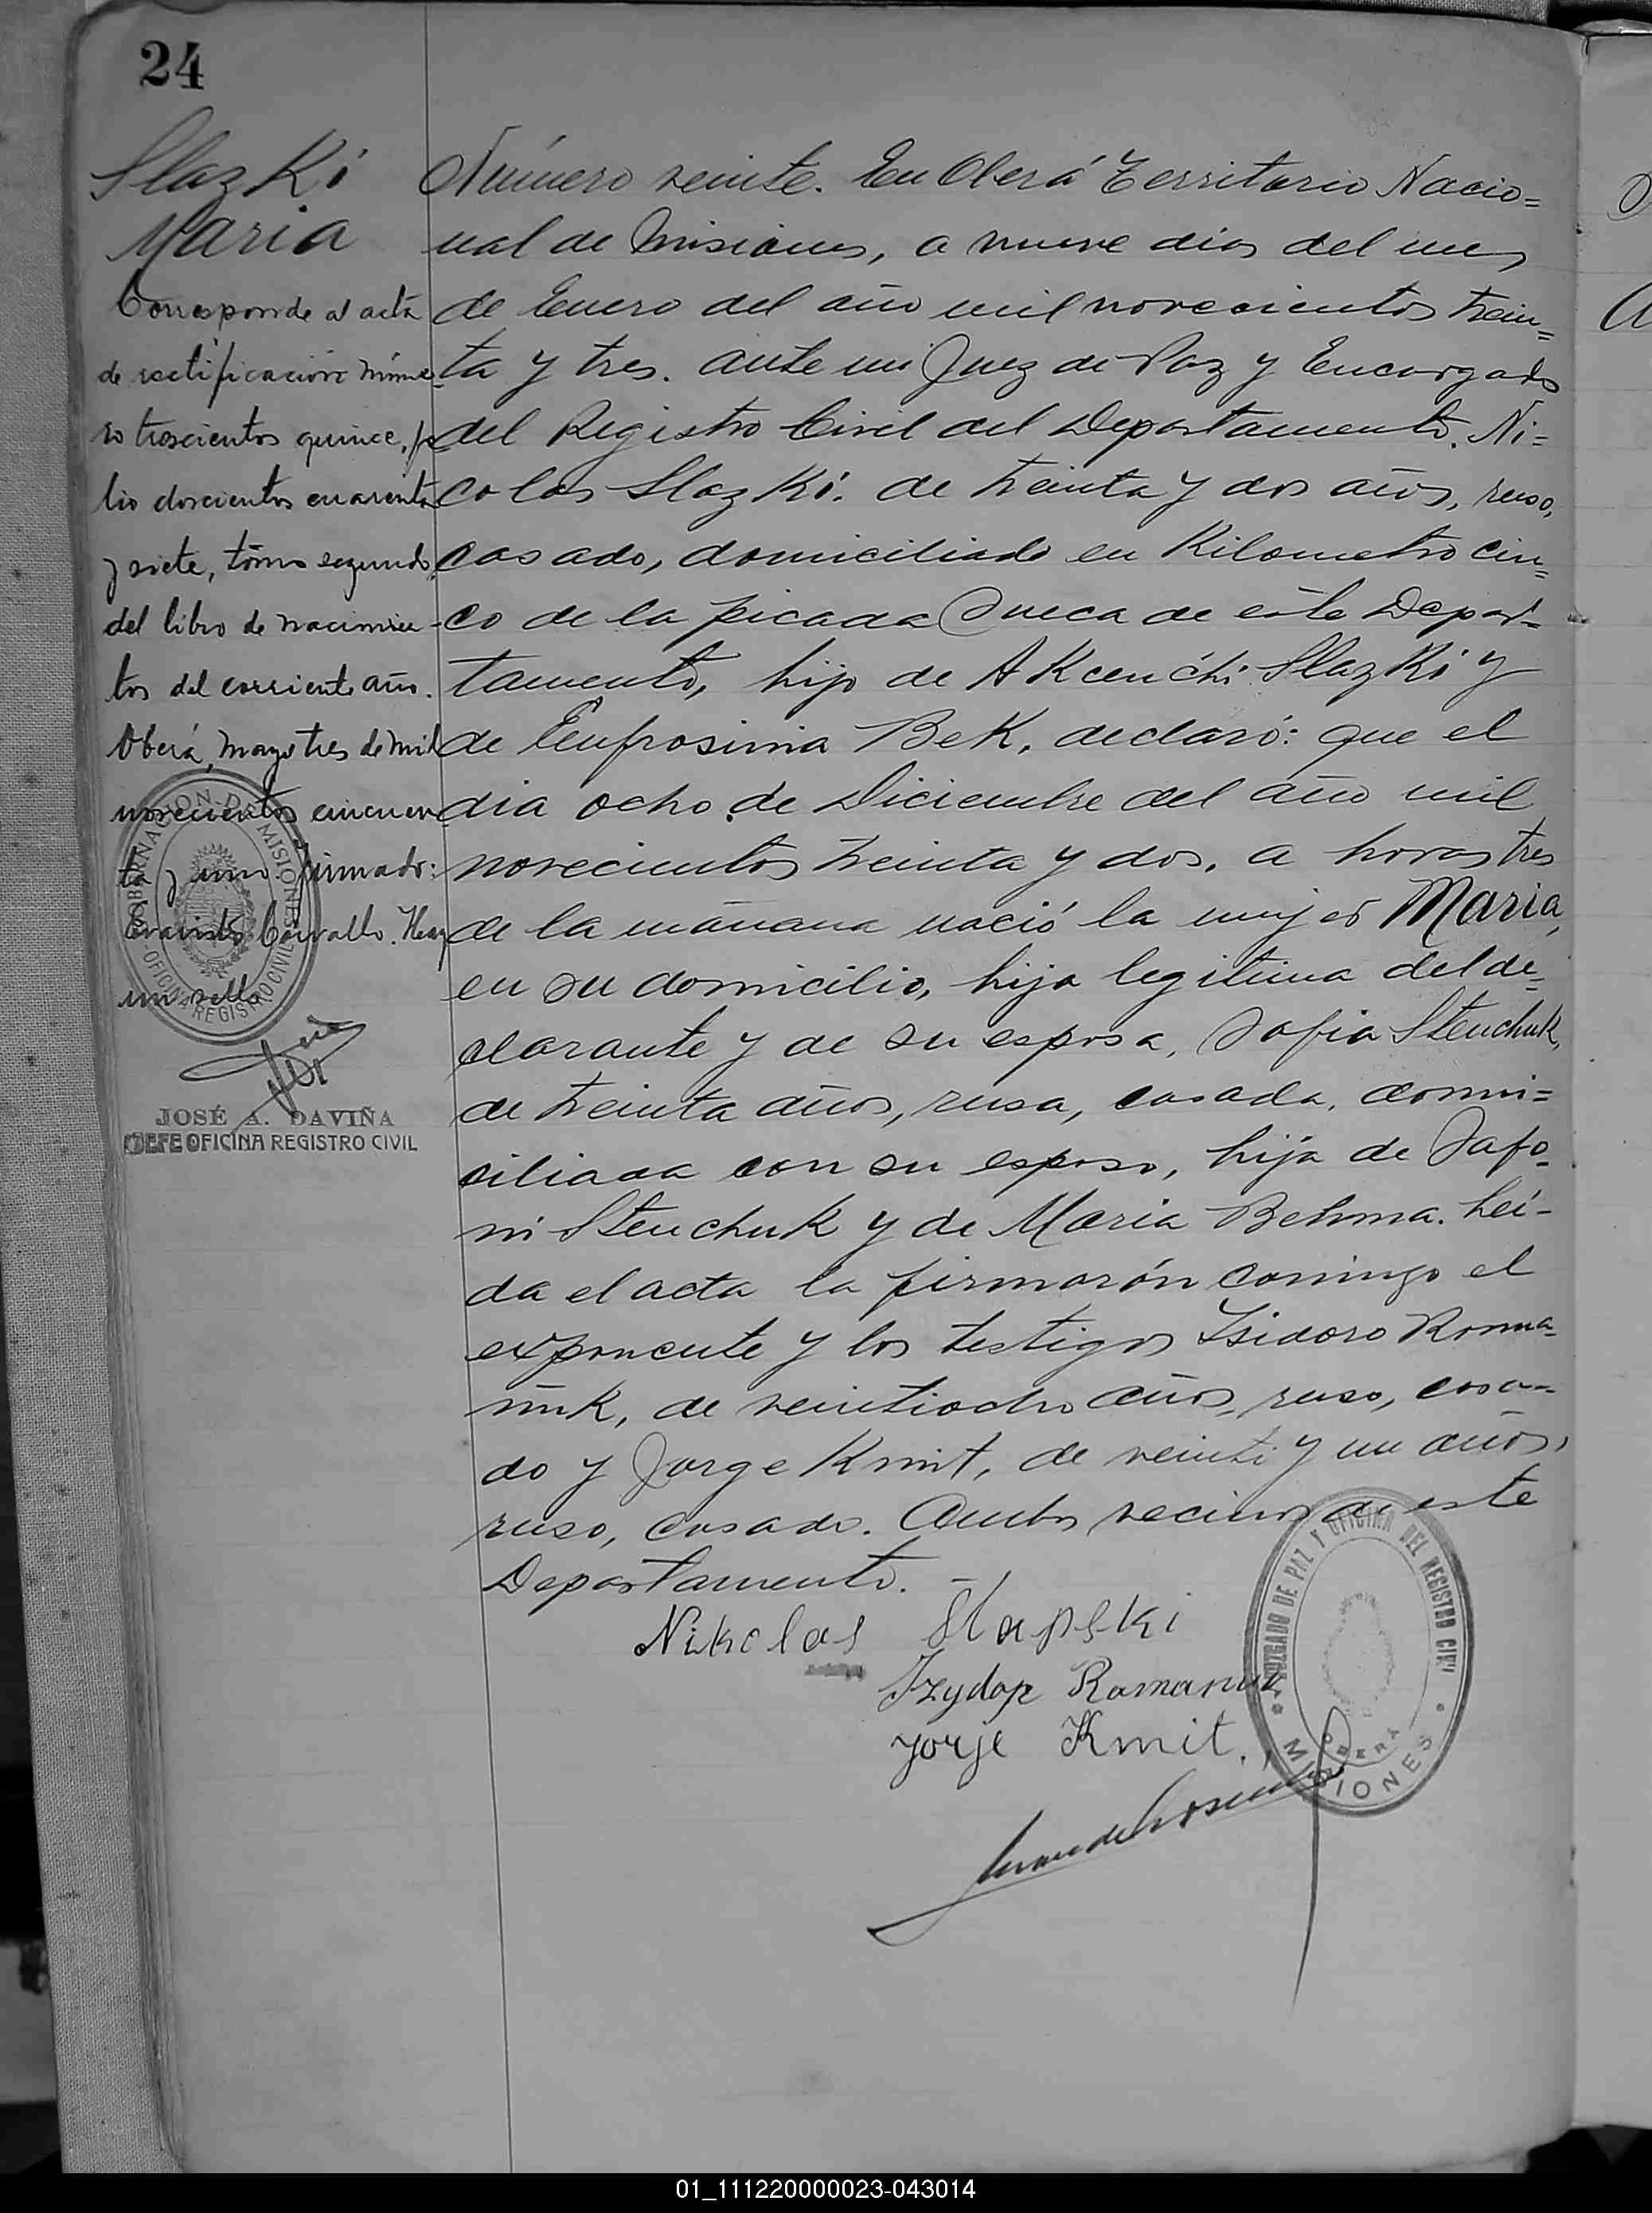 24
Slazki
Maria
Corresponde al acta
de rectificación núme-
ro trescientos quince, fo-
lio doscientos cuarenta
y siete, tomo segundo,
del libro de nacimien-
tos del corriente año.
Oberá, mayo tres de mil
novecientos cincuen-
ta y uno. Firmado:
Evaristo Carvallo. Hay
un sello
GOBERNACION DE MISIONES
OFICINA REGISTRO CIVIL
JOSÉ A. DAVIÑA
JEFE OFICINA REGISTRO CIVIL
Número veinte. En Oberá Territorio Nacio=
nal de Misiones, a nueve dias del mes
de Enero del año mil novecientos trein=
ta y tres. ante mi Juez de Paz y Encargado
del Registro Civil del Departamento. Ni=
colas Slazki. de treinta y dos años, ruso,
casado, domiciliado en Kilometro cin=
co de la picada Sueca de este Depar=
tamento, hijo de Akcenchi Slazki y
de Eufrosinia Bek, declaró: que el
dia ocho de Diciembre del año mil
novecientos treinta y dos, a horas tres
de la mañana nació la mujer Maria,
en su domicilio, hija legitima del de=
clarante y de su esposa, Sofia Stenchuk,
de treinta años, rusa, casada, domi=
ciliada con su esposo, hija de Safo=
ni Stenchuk y de Maria Behma. Leí-
da el acta la firmarón conmigo el
exponente y los testigos Isidoro Roma-
ñuk, de veintiocho años, ruso, casa=
do y Jorge Kmit, de veinti y un años,
ruso, casado. Ambos vecinos de este
Departamento. -
Nikolas Slapski
Izydor Romanuk
Jorje Kmit.
JUZGADO DE PAZ Y OFICINA DEL REGISTRO CIVIL
OBERÁ
MISIONES
01_111220000023-043014